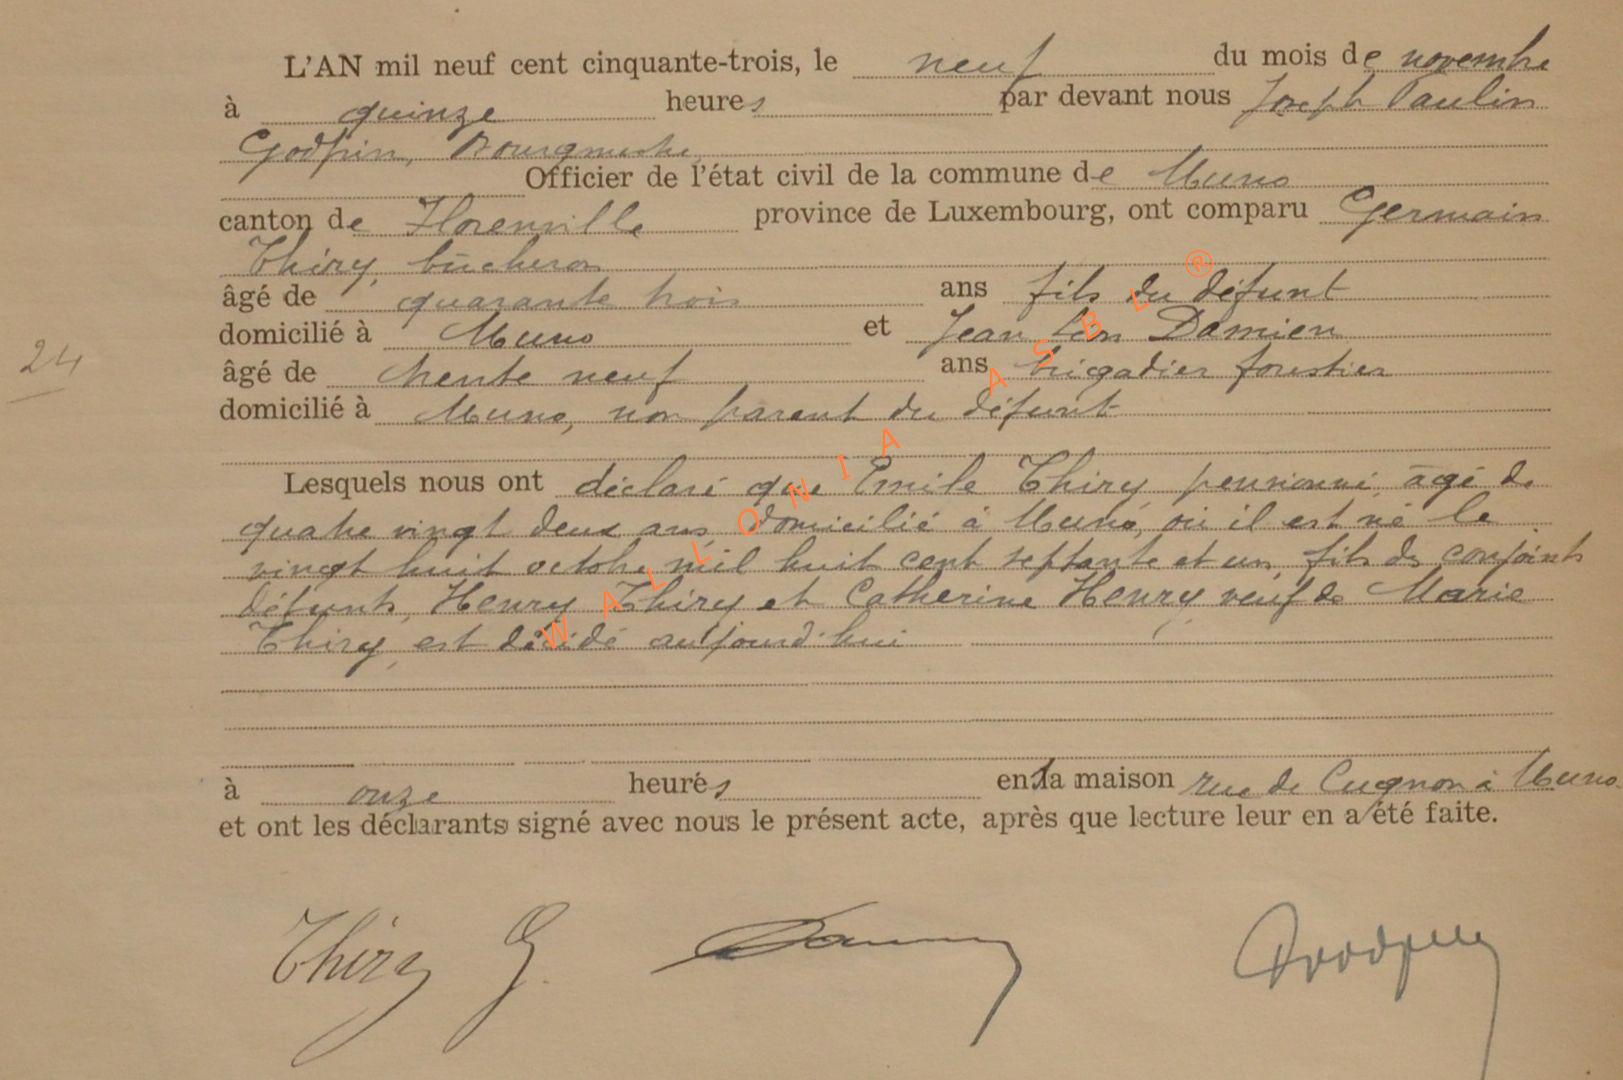 L'AN mil neuf cent cinquante-trois, le neuf du mois de novembre
à quinze heures par devant nous Joseph Paulin
Godfrin, Bourgmestre,
Officier de l'état civil de la commune de Muno
canton de Florenville province de Luxembourg, ont comparu Germain
Thiry, bûcheron
âgé de quarante trois ans fils du défunt
domicilié à Muno et Jean Léon Damien
âgé de trente neuf ans brigadier forestier
domicilié à Muno, non parent du défunt
24
Lesquels nous ont déclaré que Emile Thiry pensionné, âgé de
quatre vingt deux ans domicilié à Muno, où il est né le
vingt huit octobre mil huit cent septante et un, fils des conjoints
défunts, Henry Thiry et Catherine Henry, veuf de Marie
Thiry, est décédé aujourd'hui
à onze heures en la maison rue de Cugnon à Muno
et ont les déclarants signé avec nous le présent acte, après que lecture leur en a été faite.
Thiry G.
WALLONIA ASBL ®